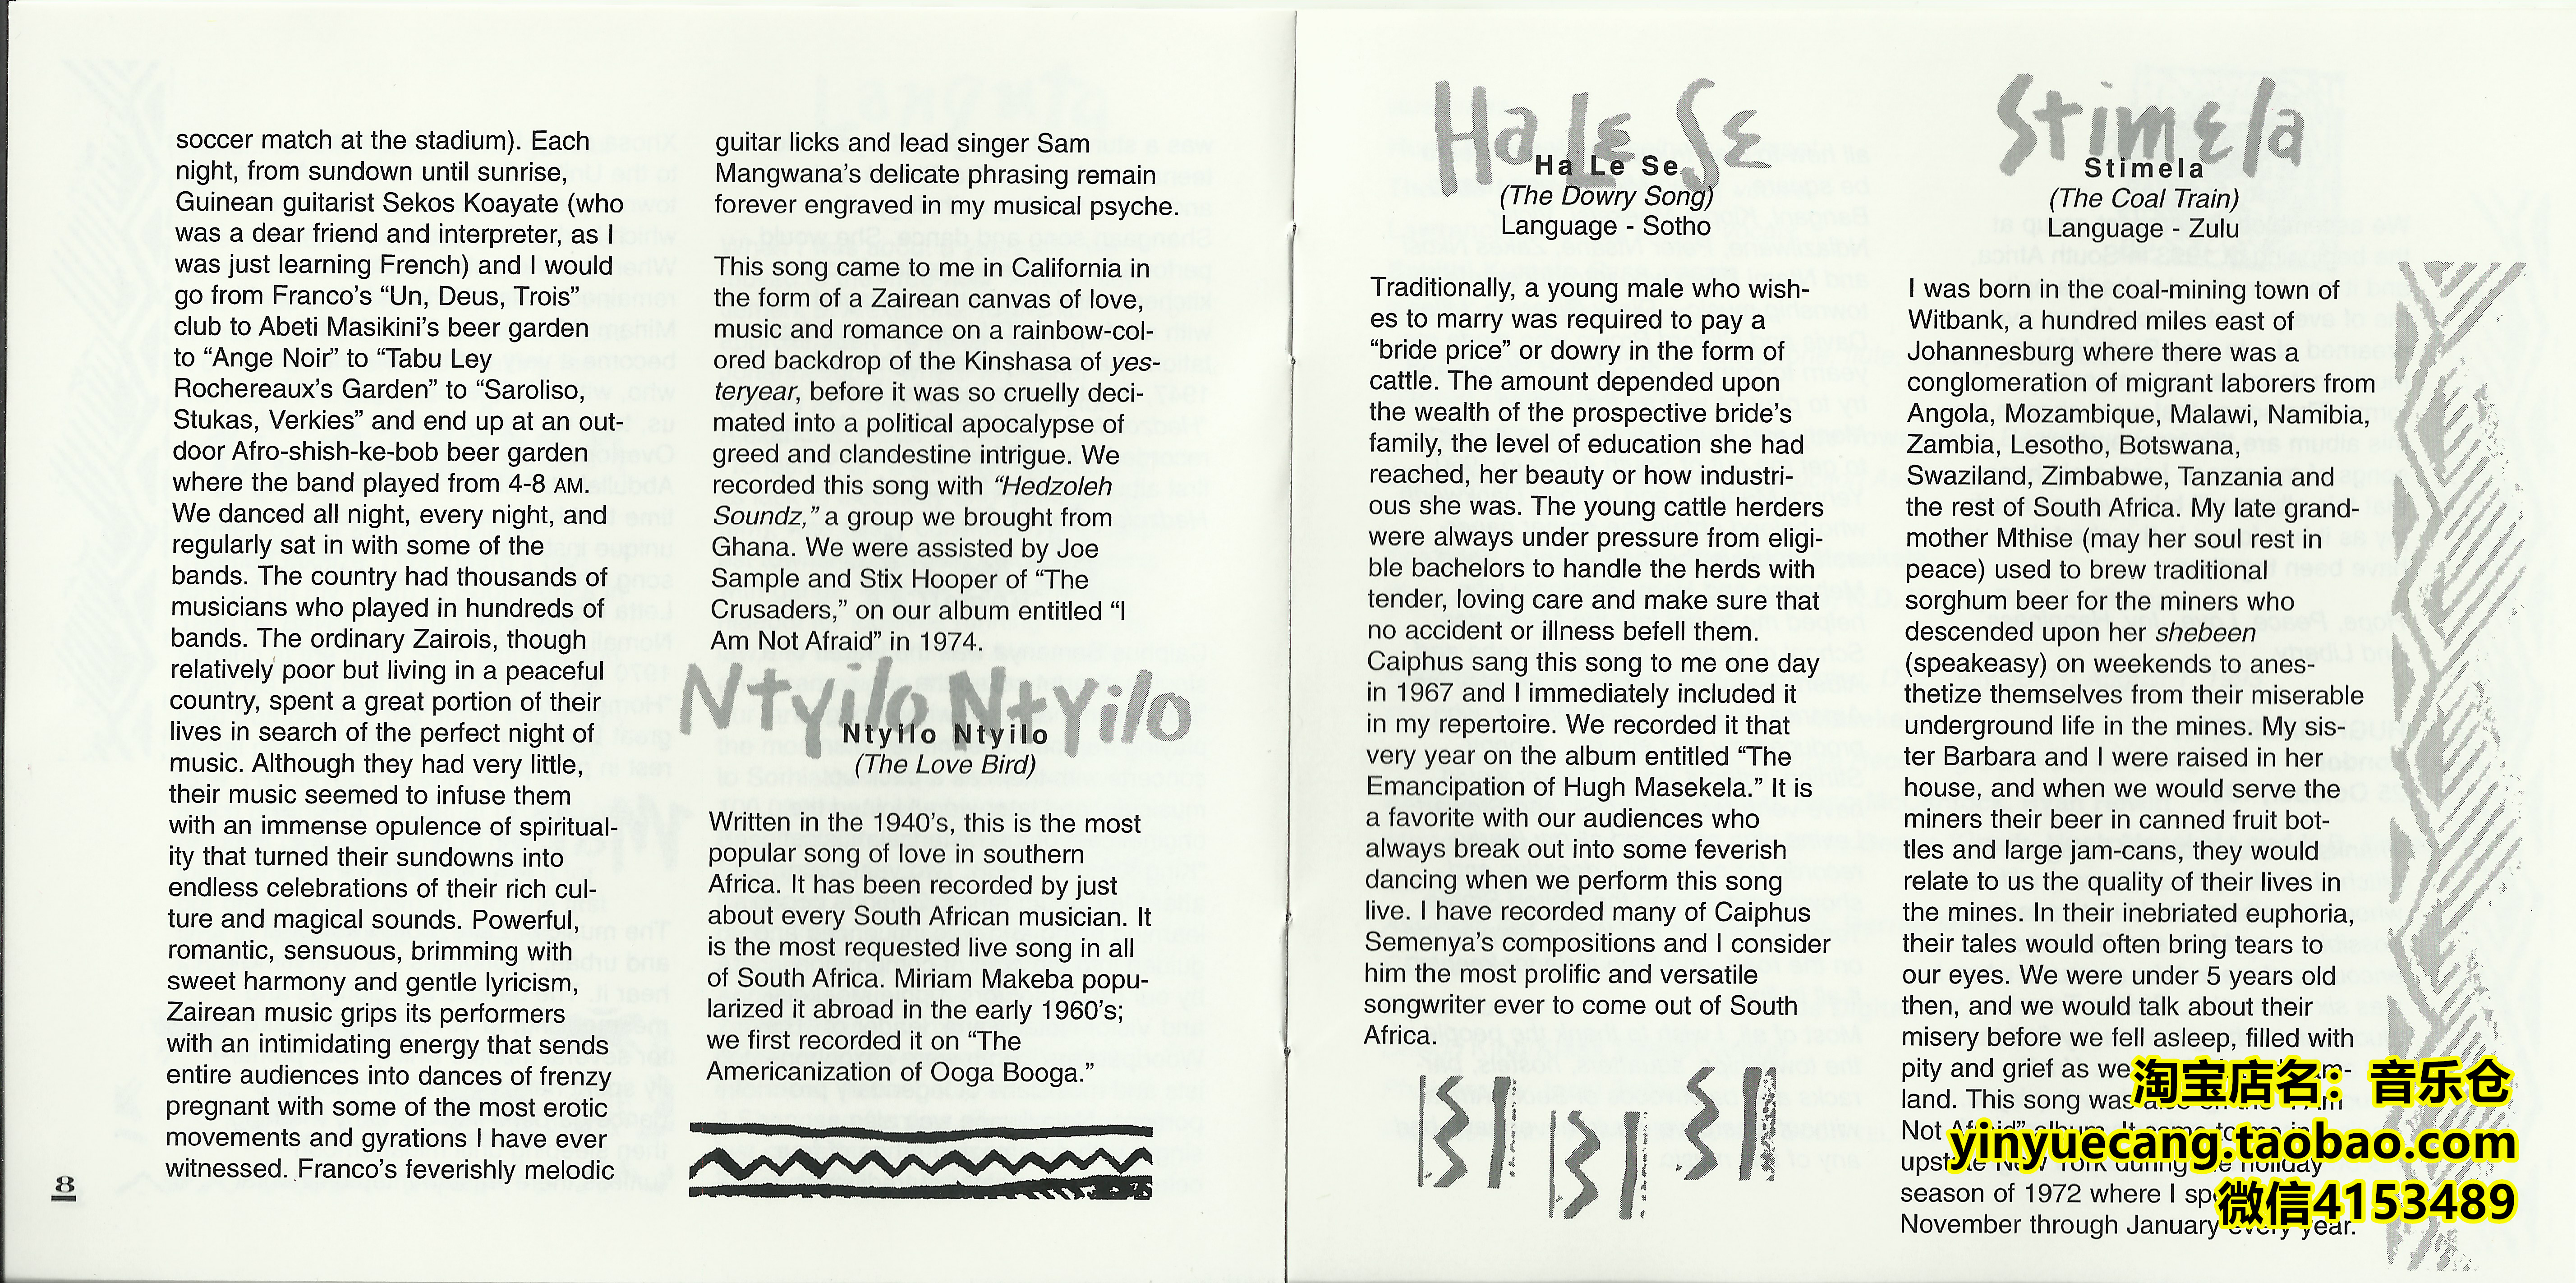 soccer match at the stadium). Each
night, from sundown until sunrise,
Guinean guitarist Sekos Koayate (who
was a dear friend and interpreter, as I
was just learning French) and I would
go from Franco's “Un, Deus, Trois”
club to Abeti Masikini's beer garden
to “Ange Noir” to “Tabu Ley
Rochereaux's Garden” to “Saroliso,
Stukas, Verkies” and end up at an out-
door Afro-shish-ke-bob beer garden
where the band played from 4-8 AM.
We danced all night, every night, and
regularly sat in with some of the
bands. The country had thousands of
musicians who played in hundreds of
bands. The ordinary Zairois, though
relatively poor but living in a peaceful
country, spent a great portion of their
lives in search of the perfect night of
music. Although they had very little,
their music seemed to infuse them
with an immense opulence of spiritual-
ity that turned their sundowns into
endless celebrations of their rich cul-
ture and magical sounds. Powerful,
romantic, sensuous, brimming with
sweet harmony and gentle lyricism,
Zairean music grips its performers
with an intimidating energy that sends
entire audiences into dances of frenzy
pregnant with some of the most erotic
movements and gyrations I have ever
witnessed. Franco's feverishly melodic
8
guitar licks and lead singer Sam
Mangwana's delicate phrasing remain
forever engraved in my musical psyche.
This song came to me in California in
the form of a Zairean canvas of love,
music and romance on a rainbow-col-
ored backdrop of the Kinshasa of yes-
teryear, before it was so cruelly deci-
mated into a political apocalypse of
greed and clandestine intrigue. We
recorded this song with “Hedzoleh
Soundz,” a group we brought from
Ghana. We were assisted by Joe
Sample and Stix Hooper of “The
Crusaders,” on our album entitled “I
Am Not Afraid” in 1974.
Ntyilo Ntyilo
Ntyilo Ntyilo
(The Love Bird)
Written in the 1940's, this is the most
popular song of love in southern
Africa. It has been recorded by just
about every South African musician. It
is the most requested live song in all
of South Africa. Miriam Makeba popu-
larized it abroad in the early 1960's;
we first recorded it on “The
Americanization of Ooga Booga.”
Ha Le Se
Ha Le Se
(The Dowry Song)
Language - Sotho
Traditionally, a young male who wish-
es to marry was required to pay a
“bride price” or dowry in the form of
cattle. The amount depended upon
the wealth of the prospective bride's
family, the level of education she had
reached, her beauty or how industri-
ous she was. The young cattle herders
were always under pressure from eligi-
ble bachelors to handle the herds with
tender, loving care and make sure that
no accident or illness befell them.
Caiphus sang this song to me one day
in 1967 and I immediately included it
in my repertoire. We recorded it that
very year on the album entitled “The
Emancipation of Hugh Masekela.” It is
a favorite with our audiences who
always break out into some feverish
dancing when we perform this song
live. I have recorded many of Caiphus
Semenya's compositions and I consider
him the most prolific and versatile
songwriter ever to come out of South
Africa.
Stimela
Stimela
(The Coal Train)
Language - Zulu
I was born in the coal-mining town of
Witbank, a hundred miles east of
Johannesburg where there was a
conglomeration of migrant laborers from
Angola, Mozambique, Malawi, Namibia,
Zambia, Lesotho, Botswana,
Swaziland, Zimbabwe, Tanzania and
the rest of South Africa. My late grand-
mother Mthise (may her soul rest in
peace) used to brew traditional
sorghum beer for the miners who
descended upon her shebeen
(speakeasy) on weekends to anes-
thetize themselves from their miserable
underground life in the mines. My sis-
ter Barbara and I were raised in her
house, and when we would serve the
miners their beer in canned fruit bot-
tles and large jam-cans, they would
relate to us the quality of their lives in
the mines. In their inebriated euphoria,
their tales would often bring tears to
our eyes. We were under 5 years old
then, and we would talk about their
misery before we fell asleep, filled with
pity and grief as we
land. This song was also on the “I Am
Not Afraid” album. It came to me in
upstate New York during the holiday
season of 1972 where I
November through January every year.
淘宝店名：音乐仓
yinyuecang.taobao.com
微信4153489